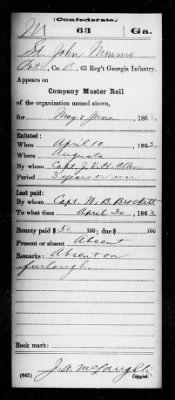 (Confederate.)
M 63 Ga.
St. John Nimmo
Pvt., Co. C, 63 Reg't Georgia Infantry.
Appears on
Company Muster Roll
of the organization named above,
for May & June, 1863.
Enlisted:
When April 10, 1862.
Where Augusta
By whom Capt. J. V. H. Allen
Period 3 years or war
Last paid:
By whom Capt. W. B. Brockett
To what time April 30, 1863.
Bounty paid $ 50 100; due $ 100
Present or absent Absent
Remarks: Absent on
furlough.
Book mark:
(642) J. A. McLaughl
Copyist.